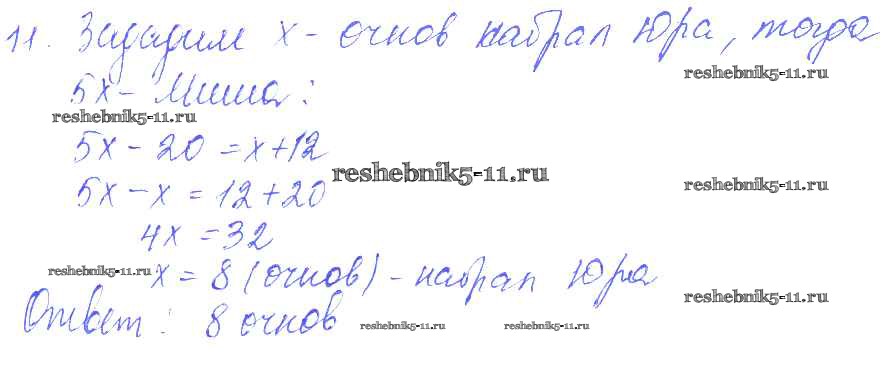 11. Зададим x - очков набрал Юра, тогда
reshebnik5-11.ru
5x - Миша:
reshebnik5-11.ru
5x - 20 = x + 12
reshebnik5-11.ru
5x - x = 12 + 20
reshebnik5-11.ru
4x = 32
reshebnik5-11.ru
x = 8 (очков) - набрал Юра
reshebnik5-11.ru
Ответ: 8 очков
reshebnik5-11.ru
reshebnik5-11.ru